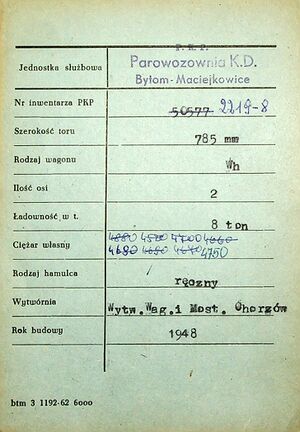 P.K.P.
Jednostka służbowa Parowozownia K.D.
Bytom-Maciejkowice
Nr inwentarza PKP 50577 2219-8
Szerokość toru 785 mm
Rodzaj wagonu Wh
Ilość osi 2
Ładowność w t. 8 ton
Ciężar własny 4880 4520 4700 4660
4680 4690 4670 4750
Rodzaj hamulca ręczny
Wytwórnia Wytw.Wag.i Most. Chorzów
Rok budowy 1948
btm 3 1192-62 6000